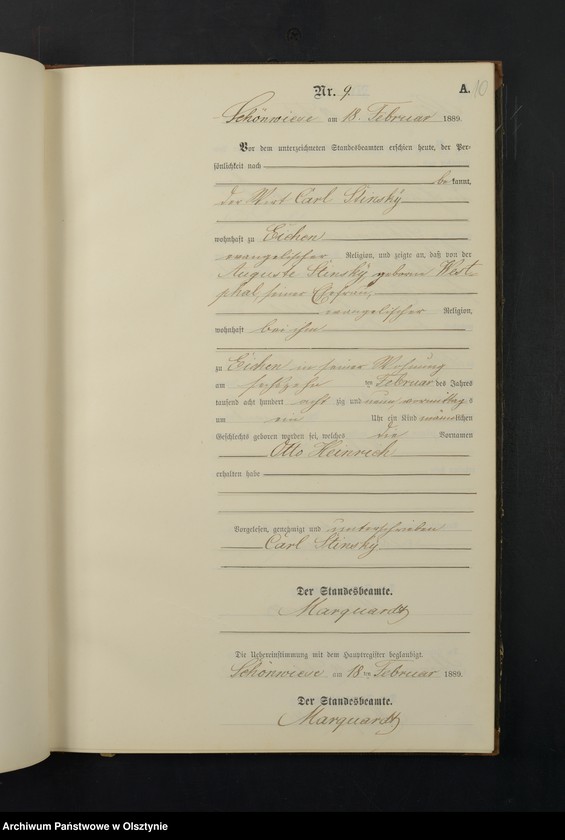 Nr. 9.
A. 10
Schönwiese am 18. Februar 1889.
Vor dem unterzeichneten Standesbeamten erschien heute, der Per-
sönlichkeit nach
be kannt,
der Wirt Carl Stinsky
wohnhaft zu Eichen
evangelischer Religion, und zeigte an, daß von der
Auguste Stinsky geborne West-
phal, seiner Ehefrau,
evangelischer Religion,
wohnhaft bei ihm
zu Eichen in seiner Wohnung
am sechszehn ten Februar des Jahres
tausend acht hundert acht zig und neun, vormittags
um ein Uhr ein Kind männlichen
Geschlechts geboren worden sei, welches die Vornamen
Otto Heinrich
erhalten habe
Vorgelesen, genehmigt und unterschrieben
Carl Stinsky
Der Standesbeamte.
Marquardt
Die Uebereinstimmung mit dem Hauptregister beglaubigt.
Schönwiese am 18 ten Februar 1889.
Der Standesbeamte.
Marquardt
Archiwum Państwowe w Olsztynie